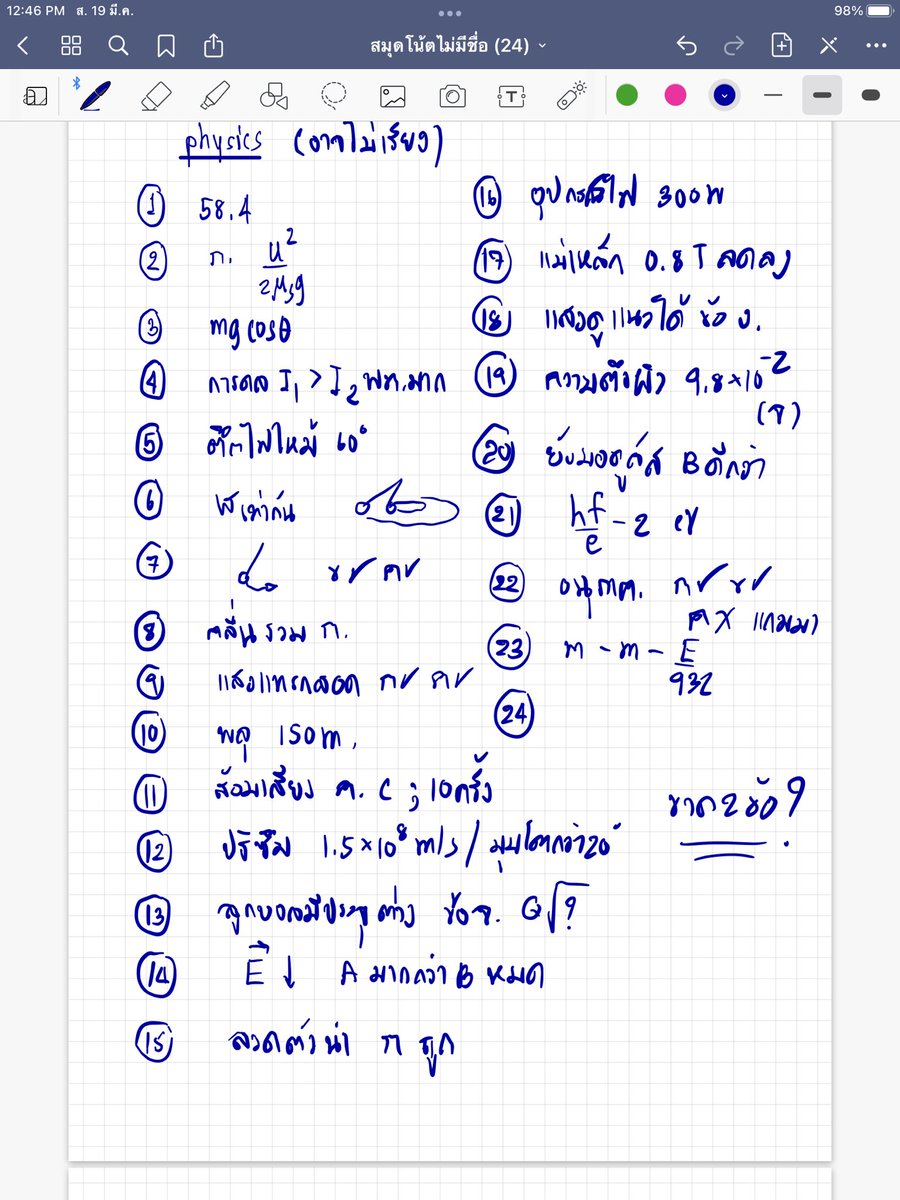 12:46 PM ส. 19 มี.ค.
98%
สมุดโน้ตไม่มีชื่อ (24)
physics (อาจไม่เรียง)
① 58.4
② ก. u²/2μsg
③ mg cosθ
④ การดล I₁ > I₂ พท.มาก
⑤ ตึกไฟไหม้ 60°
⑥ เท่ากัน
⑦ ข✓ ค✓
⑧ คลื่นรวม ก.
⑨ แสงแทรกสอด ก✓ ค✓
⑩ พลุ 150 m.
⑪ ส้อมเสียง ค. C ; 10ครั้ง
⑫ ปริซึม 1.5×10⁸ m/s / มุมโตกว่า20°
⑬ ลูกบอลมีประจุต่าง ข้อจ. Q√?
⑭ E⃗ ↓ A มากกว่า B หมด
⑮ ลวดตัวนำ ก ถูก
⑯ อุปกรณ์ไฟ 300W
⑰ แม่เหล็ก 0.8 T ลดลง
⑱ แสงดูแนวได้ ข้อ ง.
⑲ ความตึงผิว 9.8×10⁻²
(จ)
⑳ ยังมอดูลัส B ดีกว่า
㉑ hf/e - 2 eV
㉒ อนุภาค. ก✓ ข✓
ค✗ แกมมา
㉓ m - m - E/932
㉔
ขาด 2 ข้อ ?